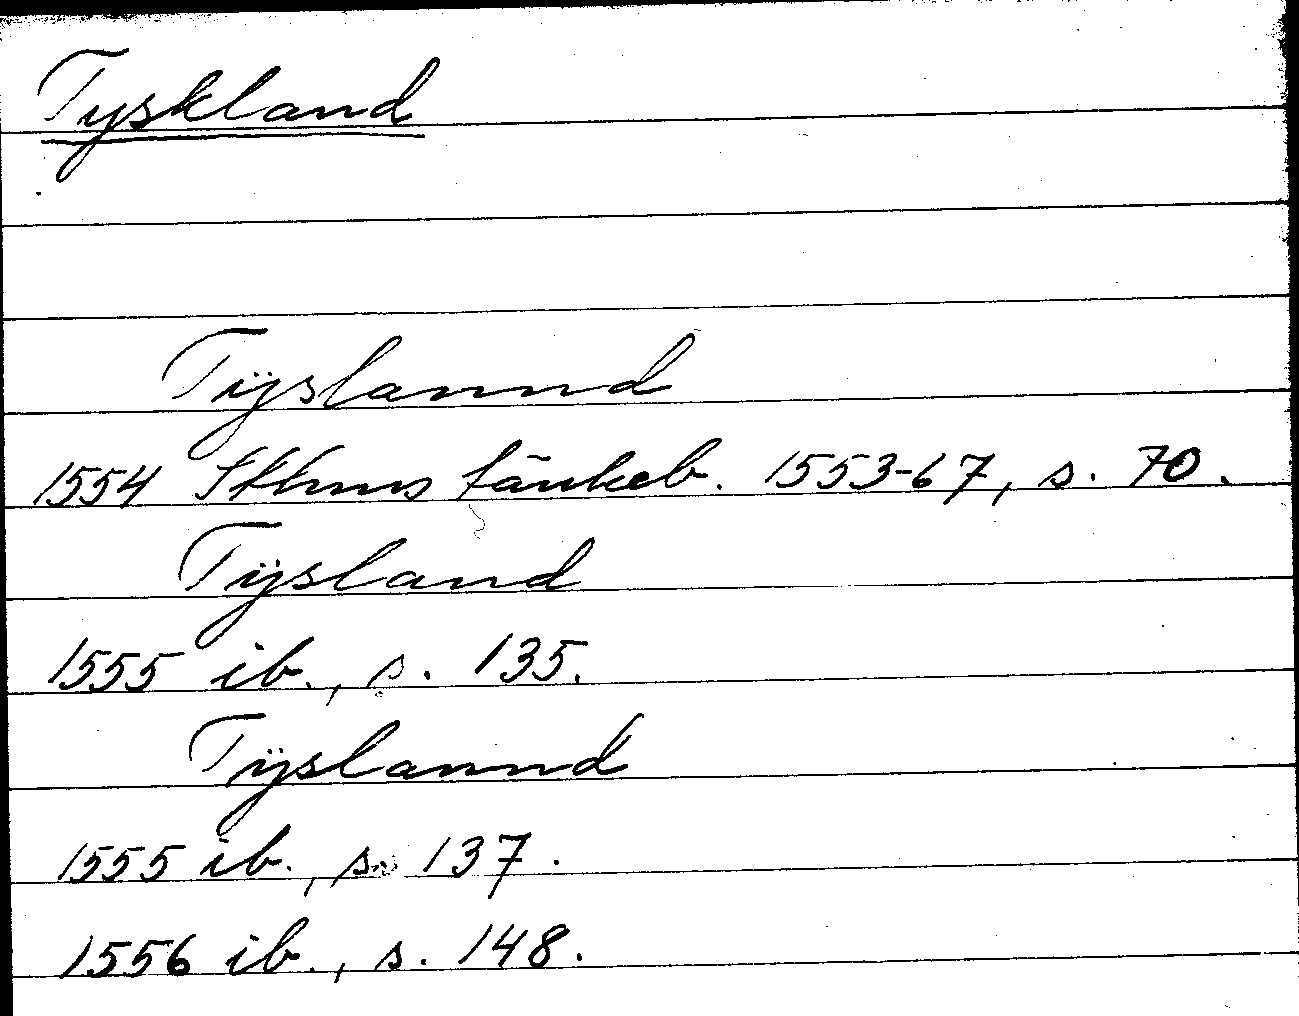 Tyskland
Tÿslannd
1554 Sthms tänkeb. 1553-67, s. 70.
Tÿsland
1555 ib., s. 135.
Tÿslannd
1555 ib., s. 137.
1556 ib., s. 148.